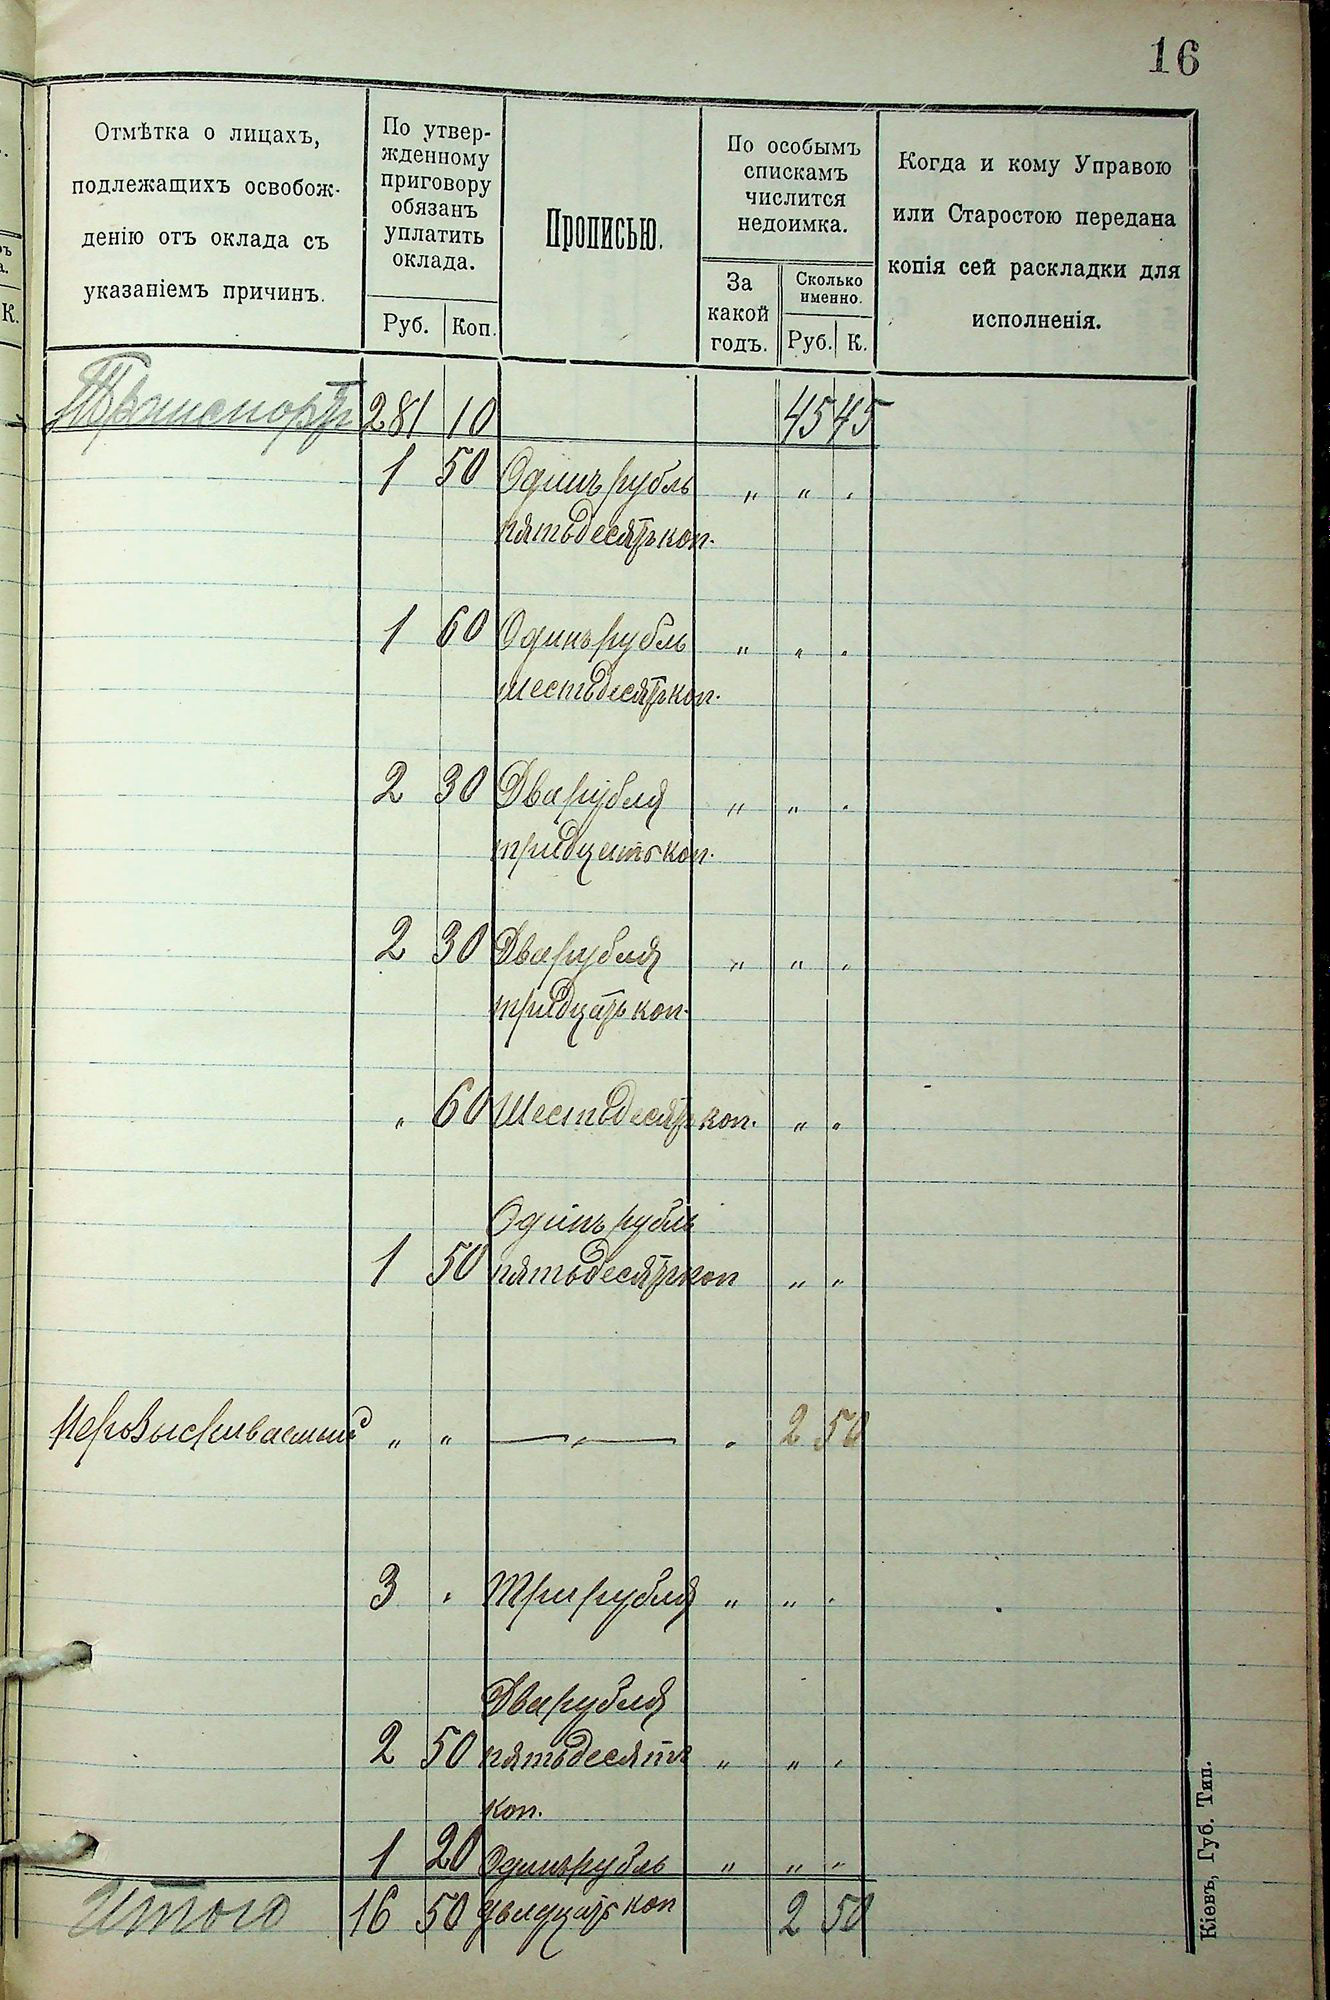 16
Отмѣтка о лицахъ,
подлежащихъ освобож-
денію отъ оклада съ
указаніемъ причинъ.
По утвер-
жденному
приговору
обязанъ
уплатить
оклада.
Руб. Коп.
Прописью.
По особымъ
спискамъ
числится
недоимка.
За
какой
годъ.
Сколько
именно.
Руб. К.
Когда и кому Управою
или Старостою передана
копія сей раскладки для
исполненія.
К.
Транспортъ 281 10 45 45
1 50 Одинъ рубль „ „ .
пятьдесятъ коп.
1 60 Одинъ рубль „ „ .
шестьдесятъ коп.
2 30 Два рубля „ „ .
тридцать коп.
2 30 Два рубля „ „ .
тридцать коп.
„ 60 Шестьдесятъ коп. „ „
Одинъ рубль
1 50 пятьдесятъ коп „ „
„ „ — „ — „ 2 50
3 „ Три рубля „ „ .
Два рубля
2 50 пятьдесятъ „ „ .
коп.
1 20 Одинъ рубль „ „ „
Итого 16 50 двадцать коп 2 50
Кіевъ, Губ. Тип.